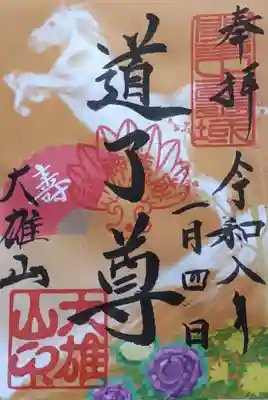 奉拝
令和八年
一月四日
道了尊
壽
大雄山
大雄
山印